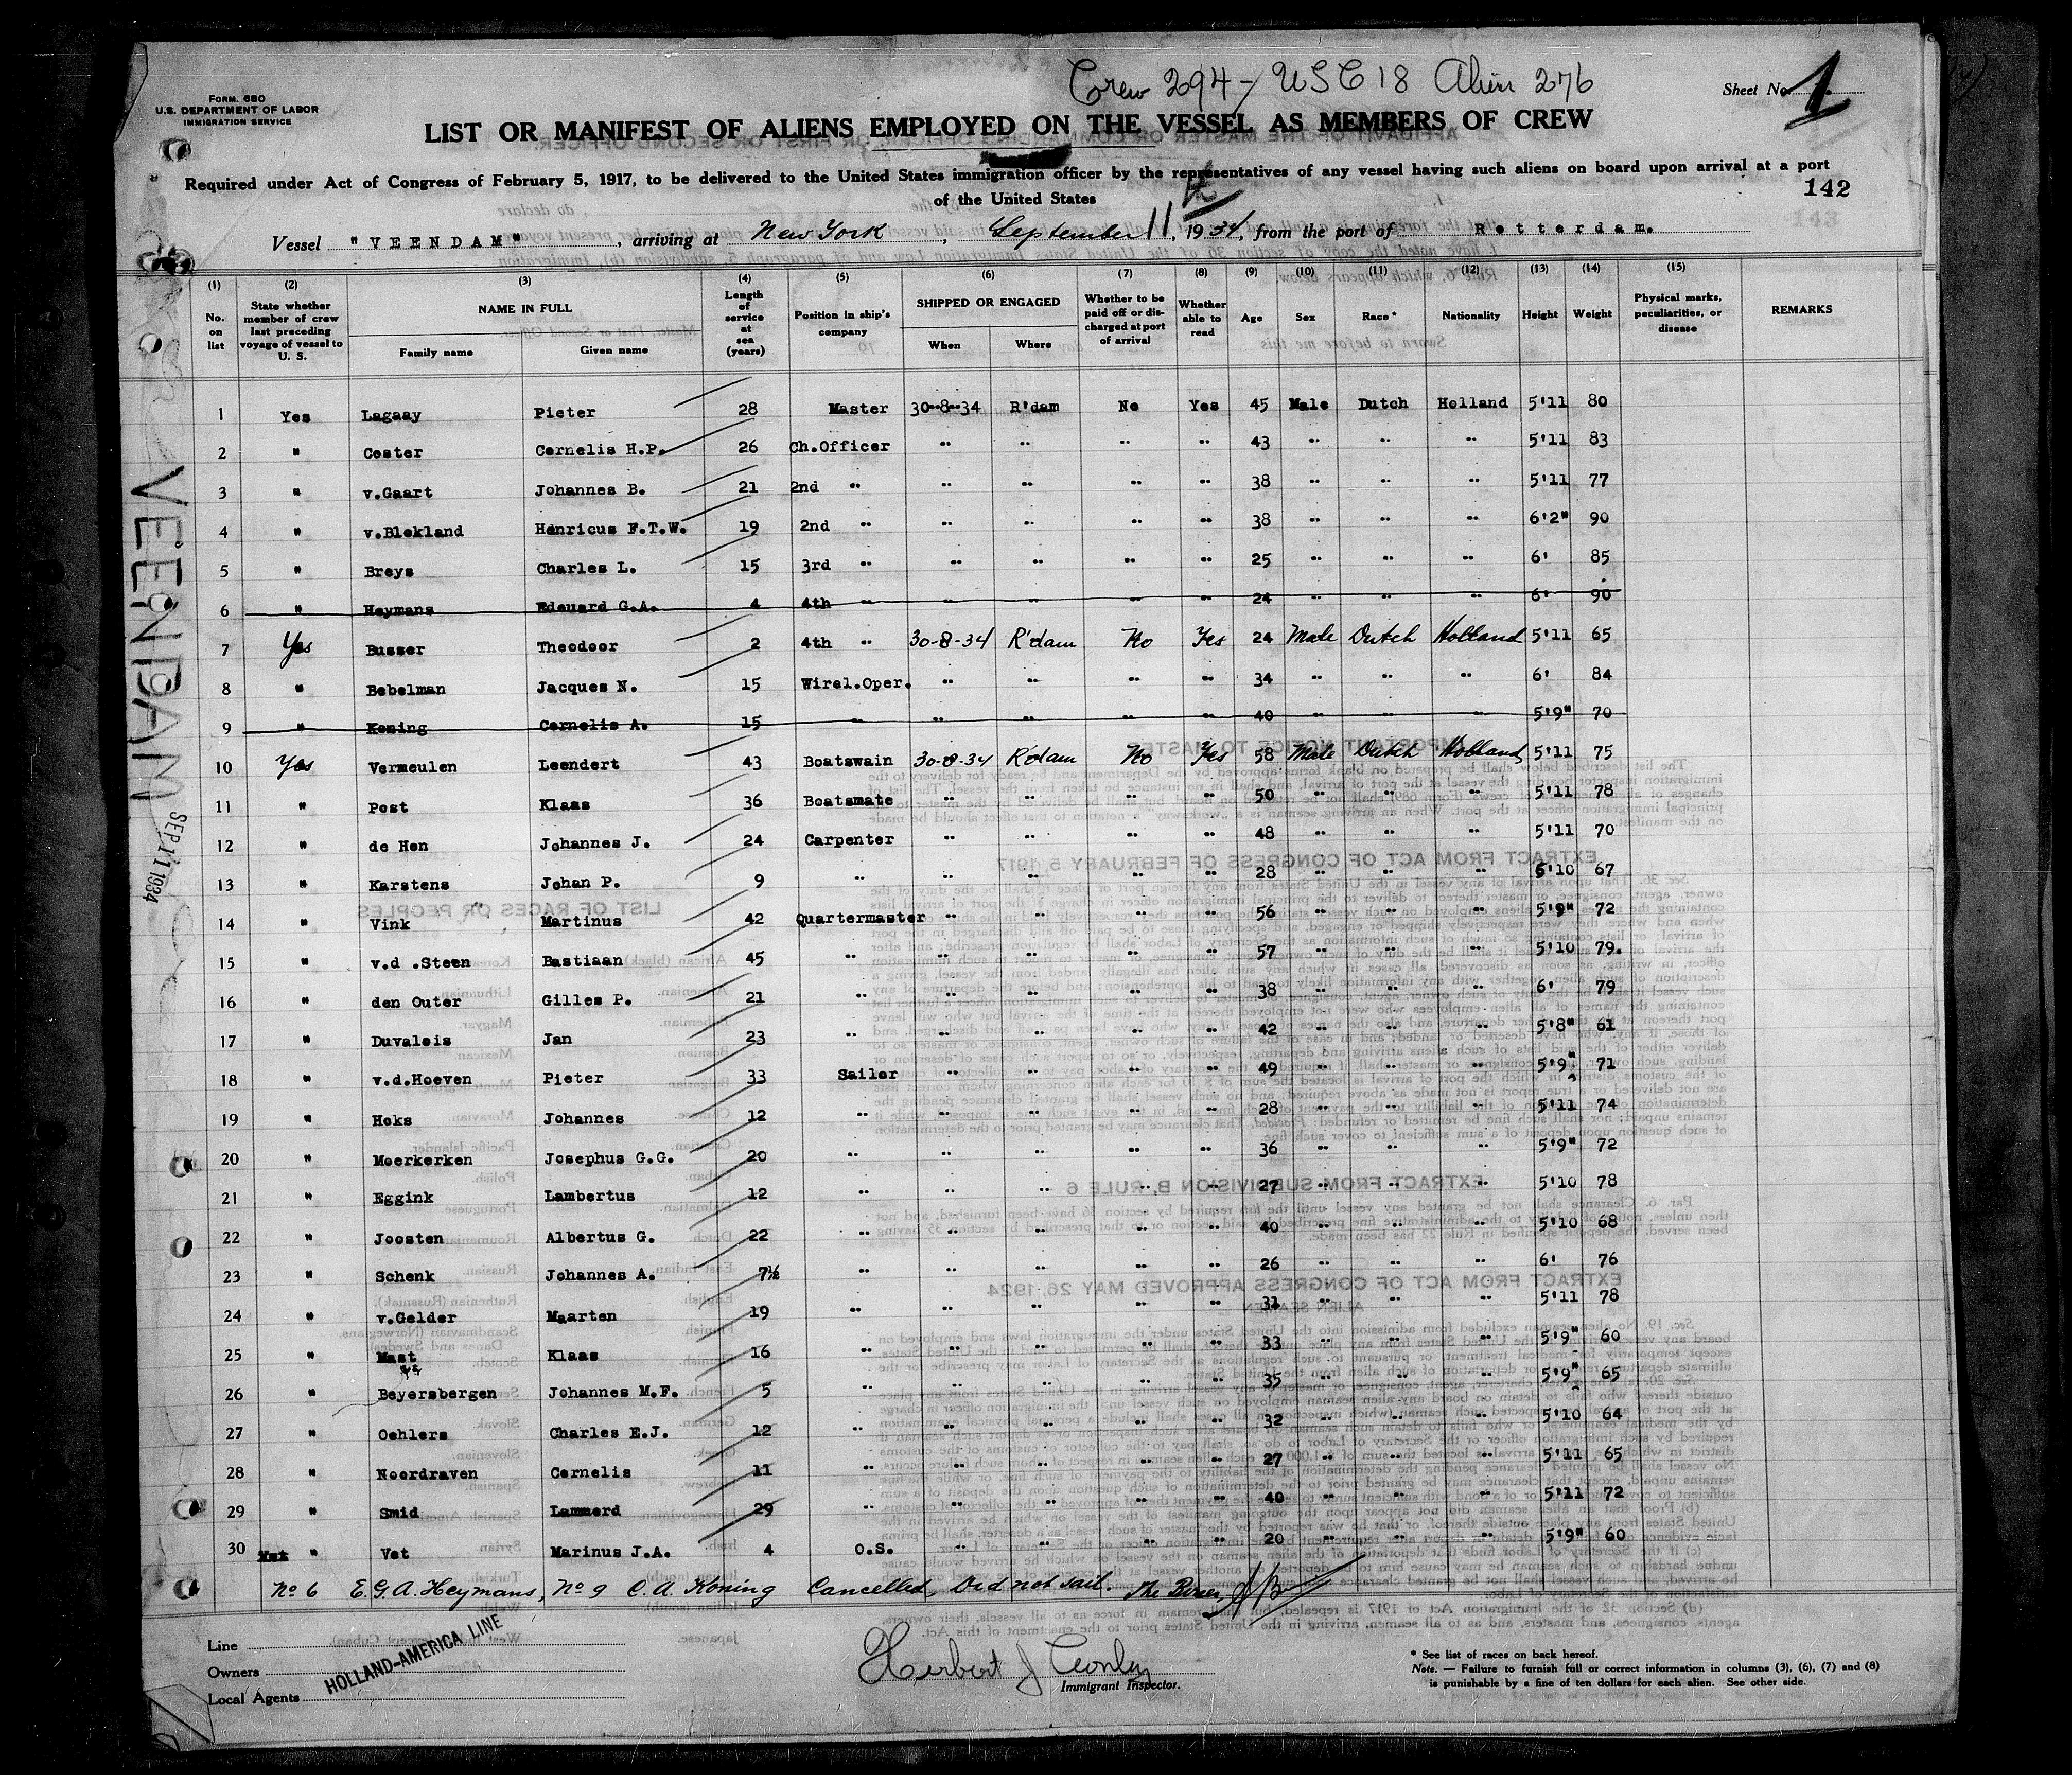 Crew 294 - USC 18 Alien 276
FORM. 680
U.S. DEPARTMENT OF LABOR
IMMIGRATION SERVICE
Sheet No. 1
LIST OR MANIFEST OF ALIENS EMPLOYED ON THE VESSEL AS MEMBERS OF CREW
Required under Act of Congress of February 5, 1917, to be delivered to the United States immigration officer by the representatives of any vessel having such aliens on board upon arrival at a port
of the United States
142
Vessel "VEENDAM", arriving at New York, September 11, 1934, from the port of Rotterdam.
(1) (2) (3) (4) (5) (6) (7) (8) (9) (10) (11) (12) (13) (14) (15)
No. on list State whether member of crew last preceding voyage of vessel to U. S. NAME IN FULL Family name Given name Length of service at sea (years) Position in ship's company SHIPPED OR ENGAGED When Where Whether to be paid off or discharged at port of arrival Whether able to read Age Sex Race * Nationality Height Weight Physical marks, peculiarities, or disease REMARKS
1 Yes Lagaay Pieter 28 Master 30-8-34 R'dam No Yes 45 Male Dutch Holland 5'11 80
2 " Coster Cornelis H.P. 26 Ch.Officer " " " " 43 " " " 5'11 83
3 " v.Gaart Johannes B. 21 2nd " " " " " 38 " " " 5'11 77
4 " v.Blokland Henricus F.T.W. 19 2nd " " " " " 38 " " " 6'2" 90
5 " Breys Charles L. 15 3rd " " " " " 25 " " " 6' 85
6 " Heymans Edouard G.A. 4 4th " " " " " 24 " " " 6' 90
7 Yes Busser Theodoor 2 4th " 30-8-34 R'dam No Yes 24 Male Dutch Holland 5'11 65
8 " Bebelman Jacques N. 15 Wirel.Oper. " " " " 34 " " " 6' 84
9 " Koning Cornelis A. 15 " " " " " 40 " " " 5'9" 70
10 Yes Vermeulen Leendert 43 Boatswain 30-8-34 R'dam No Yes 58 Male Dutch Holland 5'11 75
11 " Post Klaas 36 Boatsmate " " " " 50 " " " 5'11 78
12 " de Hon Johannes J. 24 Carpenter " " " " 48 " " " 5'11 70
13 " Karstens Johan P. 9 " " " " " 28 " " " 5'10 67
14 " Vink Martinus 42 Quartermaster " " " " 56 " " " 5'9" 72
15 " v.d .Steen Bastiaan 45 " " " " " 57 " " " 5'10 79.
16 " den Outer Gilles P. 21 " " " " " 38 " " " 6' 79
17 " Duvalois Jan 23 " " " " " 42 " " " 5'8" 61
18 " v.d.Hoeven Pieter 33 Sailor " " " " 49 " " " 5'9" 71
19 " Hoks Johannes 12 " " " " " 28 " " " 5'11 74
20 " Moerkerken Josephus G.G. 20 " " " " " 36 " " " 5'9" 72
21 " Eggink Lambertus 12 " " " " " 27 " " " 5'10 78
22 " Joosten Albertus G. 22 " " " " " 40 " " " 5'10 68
23 " Schenk Johannes A. 7½ " " " " " 26 " " " 6' 76
24 " v.Gelder Maarten 19 " " " " " 31 " " " 5'11 78
25 " Mast Klaas 16 " " " " " 33 " " " 5'9" 60
26 " Beyersbergen Johannes M.F. 5 " " " " " 35 " " " 5'9" 65
27 " Oehlers Charles E.J. 12 " " " " " 32 " " " 5'10 64
28 " Noordraven Cornelis 11 " " " " " 27 " " " 5'11 65
29 " Smid Lammerd 29 " " " " " 40 " " " 5'11 72
30 " Vet Marinus J.A. 4 O.S. " " " " 20 " " " 5'9" 60
No 6 E.G.A. Heymans, No 9 C.A. Koning Cancelled, Did not sail. The Purser,
VEENDAM
SEP 11 1934
Line
Owners
Local Agents
HOLLAND-AMERICA LINE
Immigrant Inspector.
* See list of races on back hereof.
Note. — Failure to furnish full or correct information in columns (3), (6), (7) and (8)
is punishable by a fine of ten dollars for each alien. See other side.